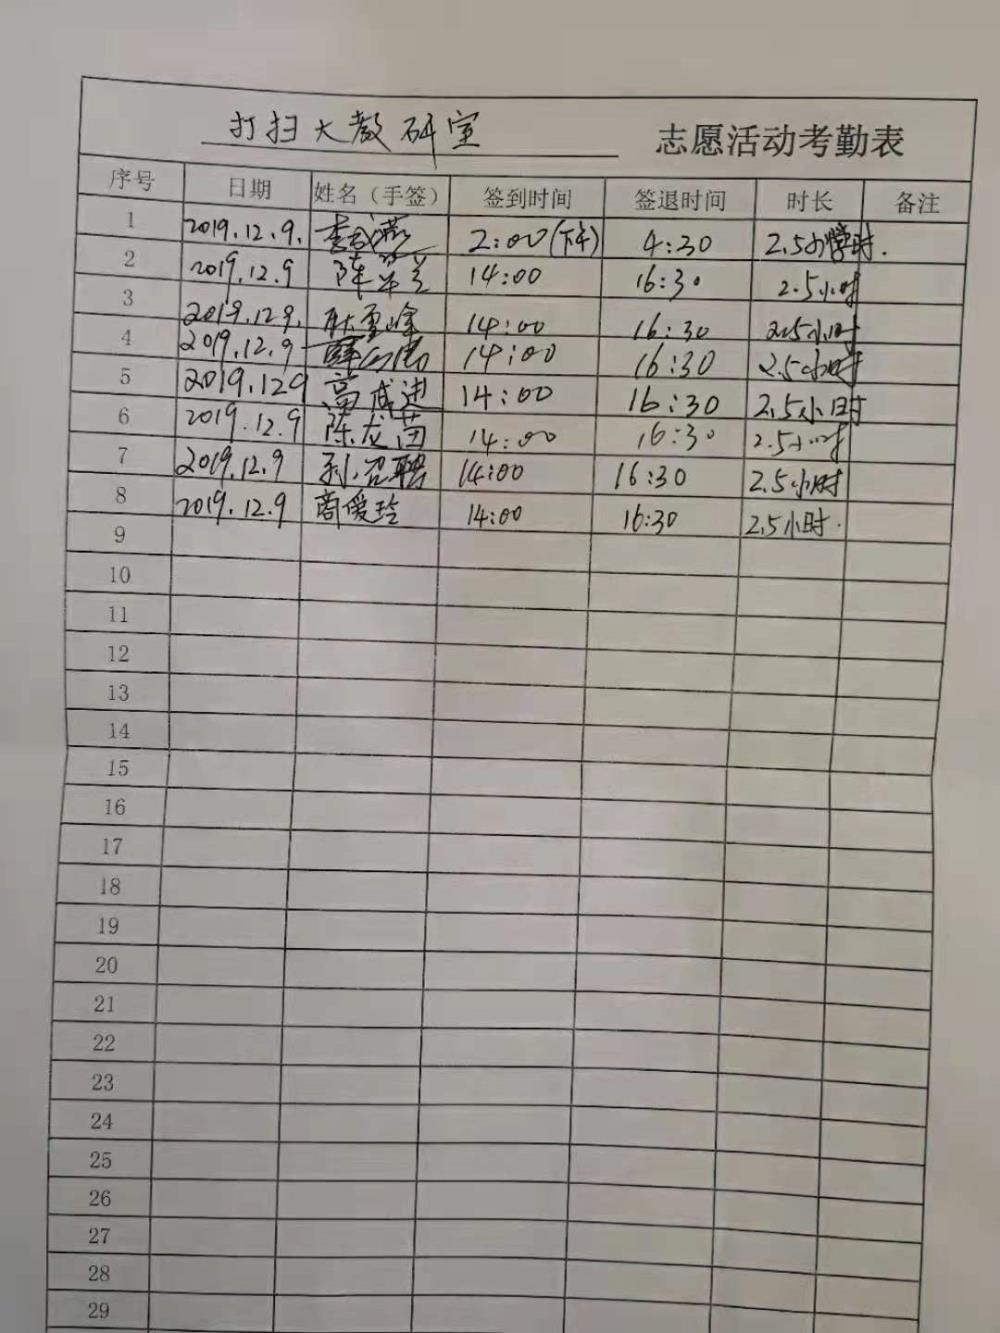 打扫大教研室 志愿活动考勤表
序号 日期 姓名（手签） 签到时间 签退时间 时长 备注
1 2019.12.9. 2:00(下午) 4:30 2.5小时.
2 2019.12.9 陈 14:00 16:30 2.5小时
3 2019.12.9. 耿雪峰 14:00 16:30 2.5小时
4 2019.12.9 14:00 16:30 2.5小时
5 2019.129 高成进 14:00 16:30 2.5小时
6 2019.12.9 陈龙茴 14:00 16:30 2.5小时
7 2019.12.9 孙召聘 14:00 16:30 2.5小时
8 2019.12.9 商爱玲 14:00 16:30 2.5小时.
9
10
11
12
13
14
15
16
17
18
19
20
21
22
23
24
25
26
27
28
29